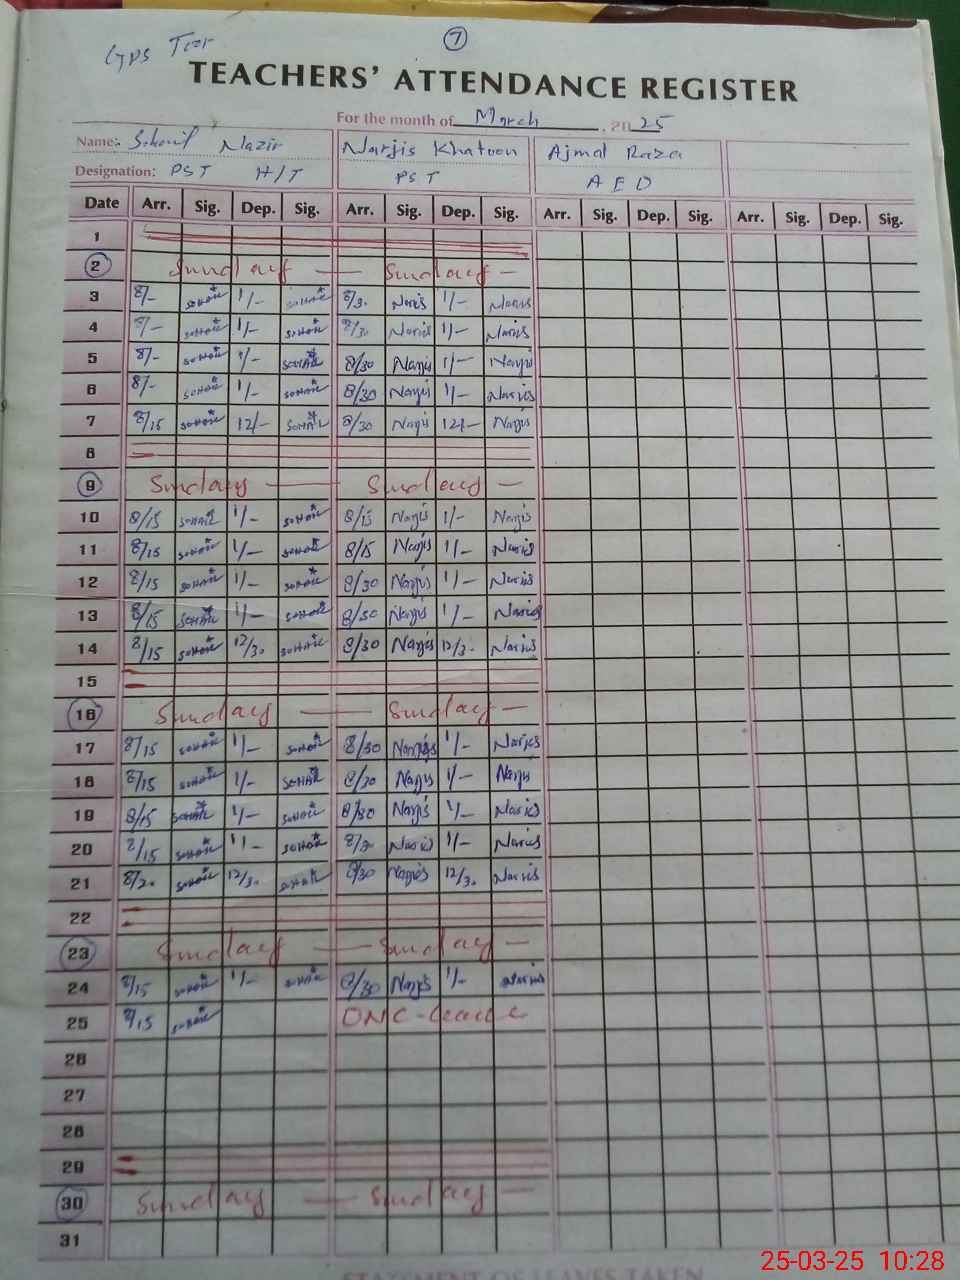 GPS
7
TEACHERS' ATTENDANCE REGISTER
For the month of March, 2025
Name: Sohail Nazir Narjis Khatoon Ajmal Raza
Designation: PST H/T PST AEO
Date Arr. Sig. Dep. Sig. Arr. Sig. Dep. Sig. Arr. Sig. Dep. Sig. Arr. Sig. Dep. Sig.
1
2 Sunday — Sunday —
3 8/- SOHAIL 1/- SOHAIL 8/30 Narjis 1/- Narjis
4 8/- SOHAIL 1/- SOHAIL 8/30 Narjis 1/- Narjis
5 8/- SOHAIL 1/- SOHAIL 8/30 Narjis 1/- Narjis
6 8/- SOHAIL 1/- SOHAIL 8/30 Narjis 1/- Narjis
7 8/15 SOHAIL 12/- SOHAIL 8/30 Narjis 12/- Narjis
8
9 Sunday — Sunday —
10 8/15 SOHAIL 1/- SOHAIL 8/15 Narjis 1/- Narjis
11 8/15 SOHAIL 1/- SOHAIL 8/15 Narjis 1/- Narjis
12 8/15 SOHAIL 1/- SOHAIL 8/30 Narjis 1/- Narjis
13 8/15 SOHAIL 1/- SOHAIL 8/30 Narjis 1/- Narjis
14 8/15 SOHAIL 12/30 SOHAIL 8/30 Narjis 12/30 Narjis
15
16 Sunday — Sunday —
17 8/15 SOHAIL 1/- SOHAIL 8/30 Narjis 1/- Narjis
18 8/15 SOHAIL 1/- SOHAIL 8/30 Narjis 1/- Narjis
19 8/15 SOHAIL 1/- SOHAIL 8/30 Narjis 1/- Narjis
20 8/15 SOHAIL 1/- SOHAIL 8/30 Narjis 1/- Narjis
21 8/20 SOHAIL 12/30 SOHAIL 8/30 Narjis 12/30 Narjis
22
23 Sunday — Sunday —
24 8/15 SOHAIL 1/- SOHAIL 8/30 Narjis 1/- Narjis
25 8/15 SOHAIL ONC-Leave
26
27
28
29
30 Sunday — Sunday —
31
STATEMENT OF LEAVES TAKEN
25-03-25 10:28